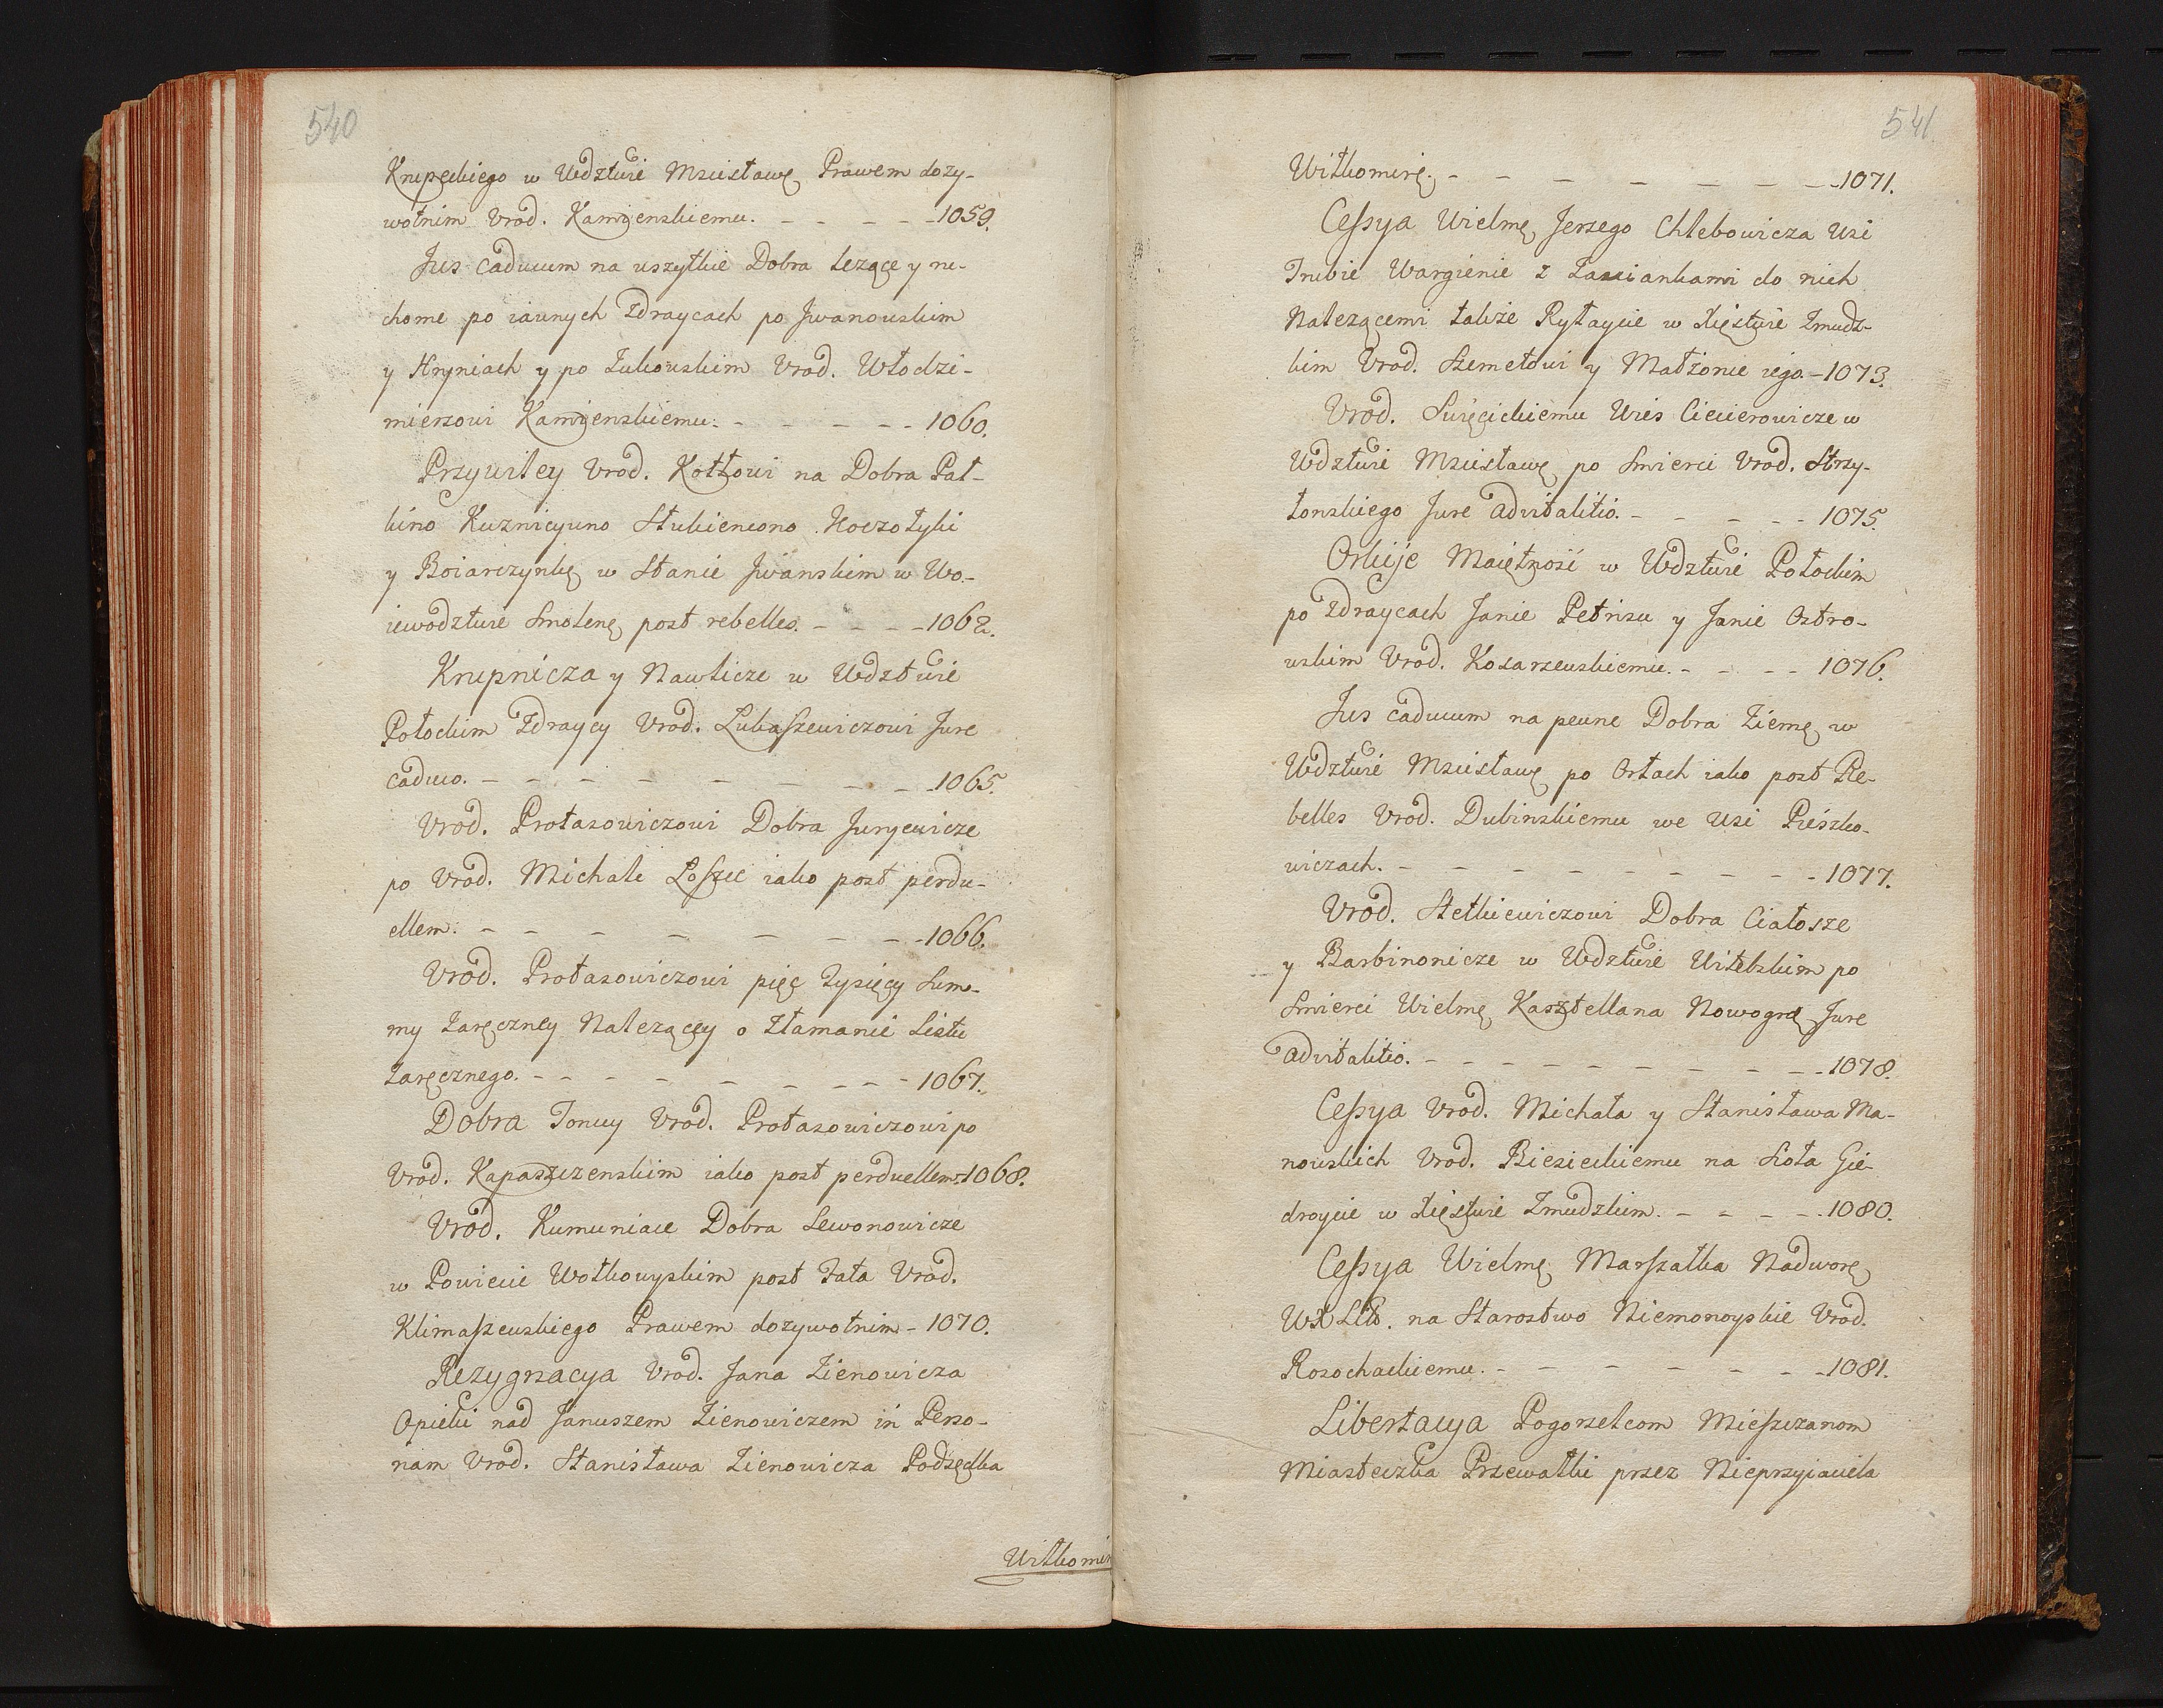 540
Krupeckiego w Wdztwie Mscisławę Prawem dozy-
wotnim Vrod. Kamięnskiemu. - - - - - 1059.
Jus caducum na wszytkie Dobra lezące y ru-
chome po iawnych Zdraycach po Jwanowskim
y Hryniach y po Zukowskim Vrod. Włodzi-
mierzowi Kamięnskiemu. - - - - - 1060.
Przywiley Vrod. Kotłowi na Dobra Pał-
kino Kuznicyno Stubiencono Hoczotyki
y Boiarczynkę w Stanie Jwanskim w Wo-
iewodztwie Smolenę post rebelles. - - - - 1062.
Krupnicza y Nawlicze w Wdztwie
Połockim Zdraycy Vrod. Lukaszewiczowi Jure
caduco. - - - - - - - - 1065.
Vrod. Protasowiczowi Dobra Juryewicze
po Vrod. Michale Łoszec iako post perdu-
ellem. - - - - - - - - 1066.
Vrod. Protasowiczowi pięc Tysięcy Sum-
my Zaręczney Nalezącey o Złamanie Listu
Zaręcznego. - - - - - - - - - 1067.
Dobra Tonwy Vrod. Protasowiczowi po
Vrod. Kapaszczenskim iako post perduellem. 1068.
Vrod. Kumuniace Dobra Lewonowicze
w Powiecie Wołkowyskim post Fata Vrod.
Klimaszewskiego Prawem dozywotnim - 1070.
Rezygnacya Vrod. Jana Zienowicza
Opieki nad Januszem Zienowiczem in Perso-
nam Vrod. Stanisława Zienowicza Podsędka
Wiłkomir
541
Wiłkomirę. - - - - - - - - 1071.
Cessya Wielmę Jerzego Chlebowicza wsi
Trubie Wargienie z Zasciankami do nich
Nalezącemi takze Rytaycie w Xięstwie Zmudz-
kim Vrod. Szemetowi y Małzonie iego - 1073.
Vrod. Swięcickiemu Wies Ciecierowicze w
Wdztwie Mscisławę po Smierci Vrod. Strzy-
łonskiego Jure advitalitio. - - - - - 1075.
Orkije Maiętnosć w Wdztwie Połockim
po Zdraycach Janie Petrisu y Janie Ostro-
wskim Vrod. Kosarzewskiemu. - - - - 1076.
Jus caducum na pewne Dobra Ziemę w
Wdztwie Mscisławę po Orłach iako post Re-
belles Vrod. Dubinskiemu we wsi Pieszko-
wiczach. - - - - - - - - - 1077.
Vrod. Stetkiewiczowi Dobra Ciałosze
y Barbinonicze w Wdztwie Witebskim po
Smierci Wielmę Kasztellana Nowogrę Jure
advitalitio. - - - - - - - - - 1078.
Cessya Vrod. Michała y Stanisława Ma-
nowskich Vrod. Biesieckiemu na Sioła Gie-
droycie w Xięstwie Zmudzkim. - - - - 1080.
Cessya Wielmę Marszałka Nadworę
WXLitt. na Starostwo Niemonoyskie Vrod.
Rosochackiemu. - - - - - - - 1081.
Libertacya Pogorzelcom Mieszczanom
Miasteczka Przewałki przez Nieprzyiaciela